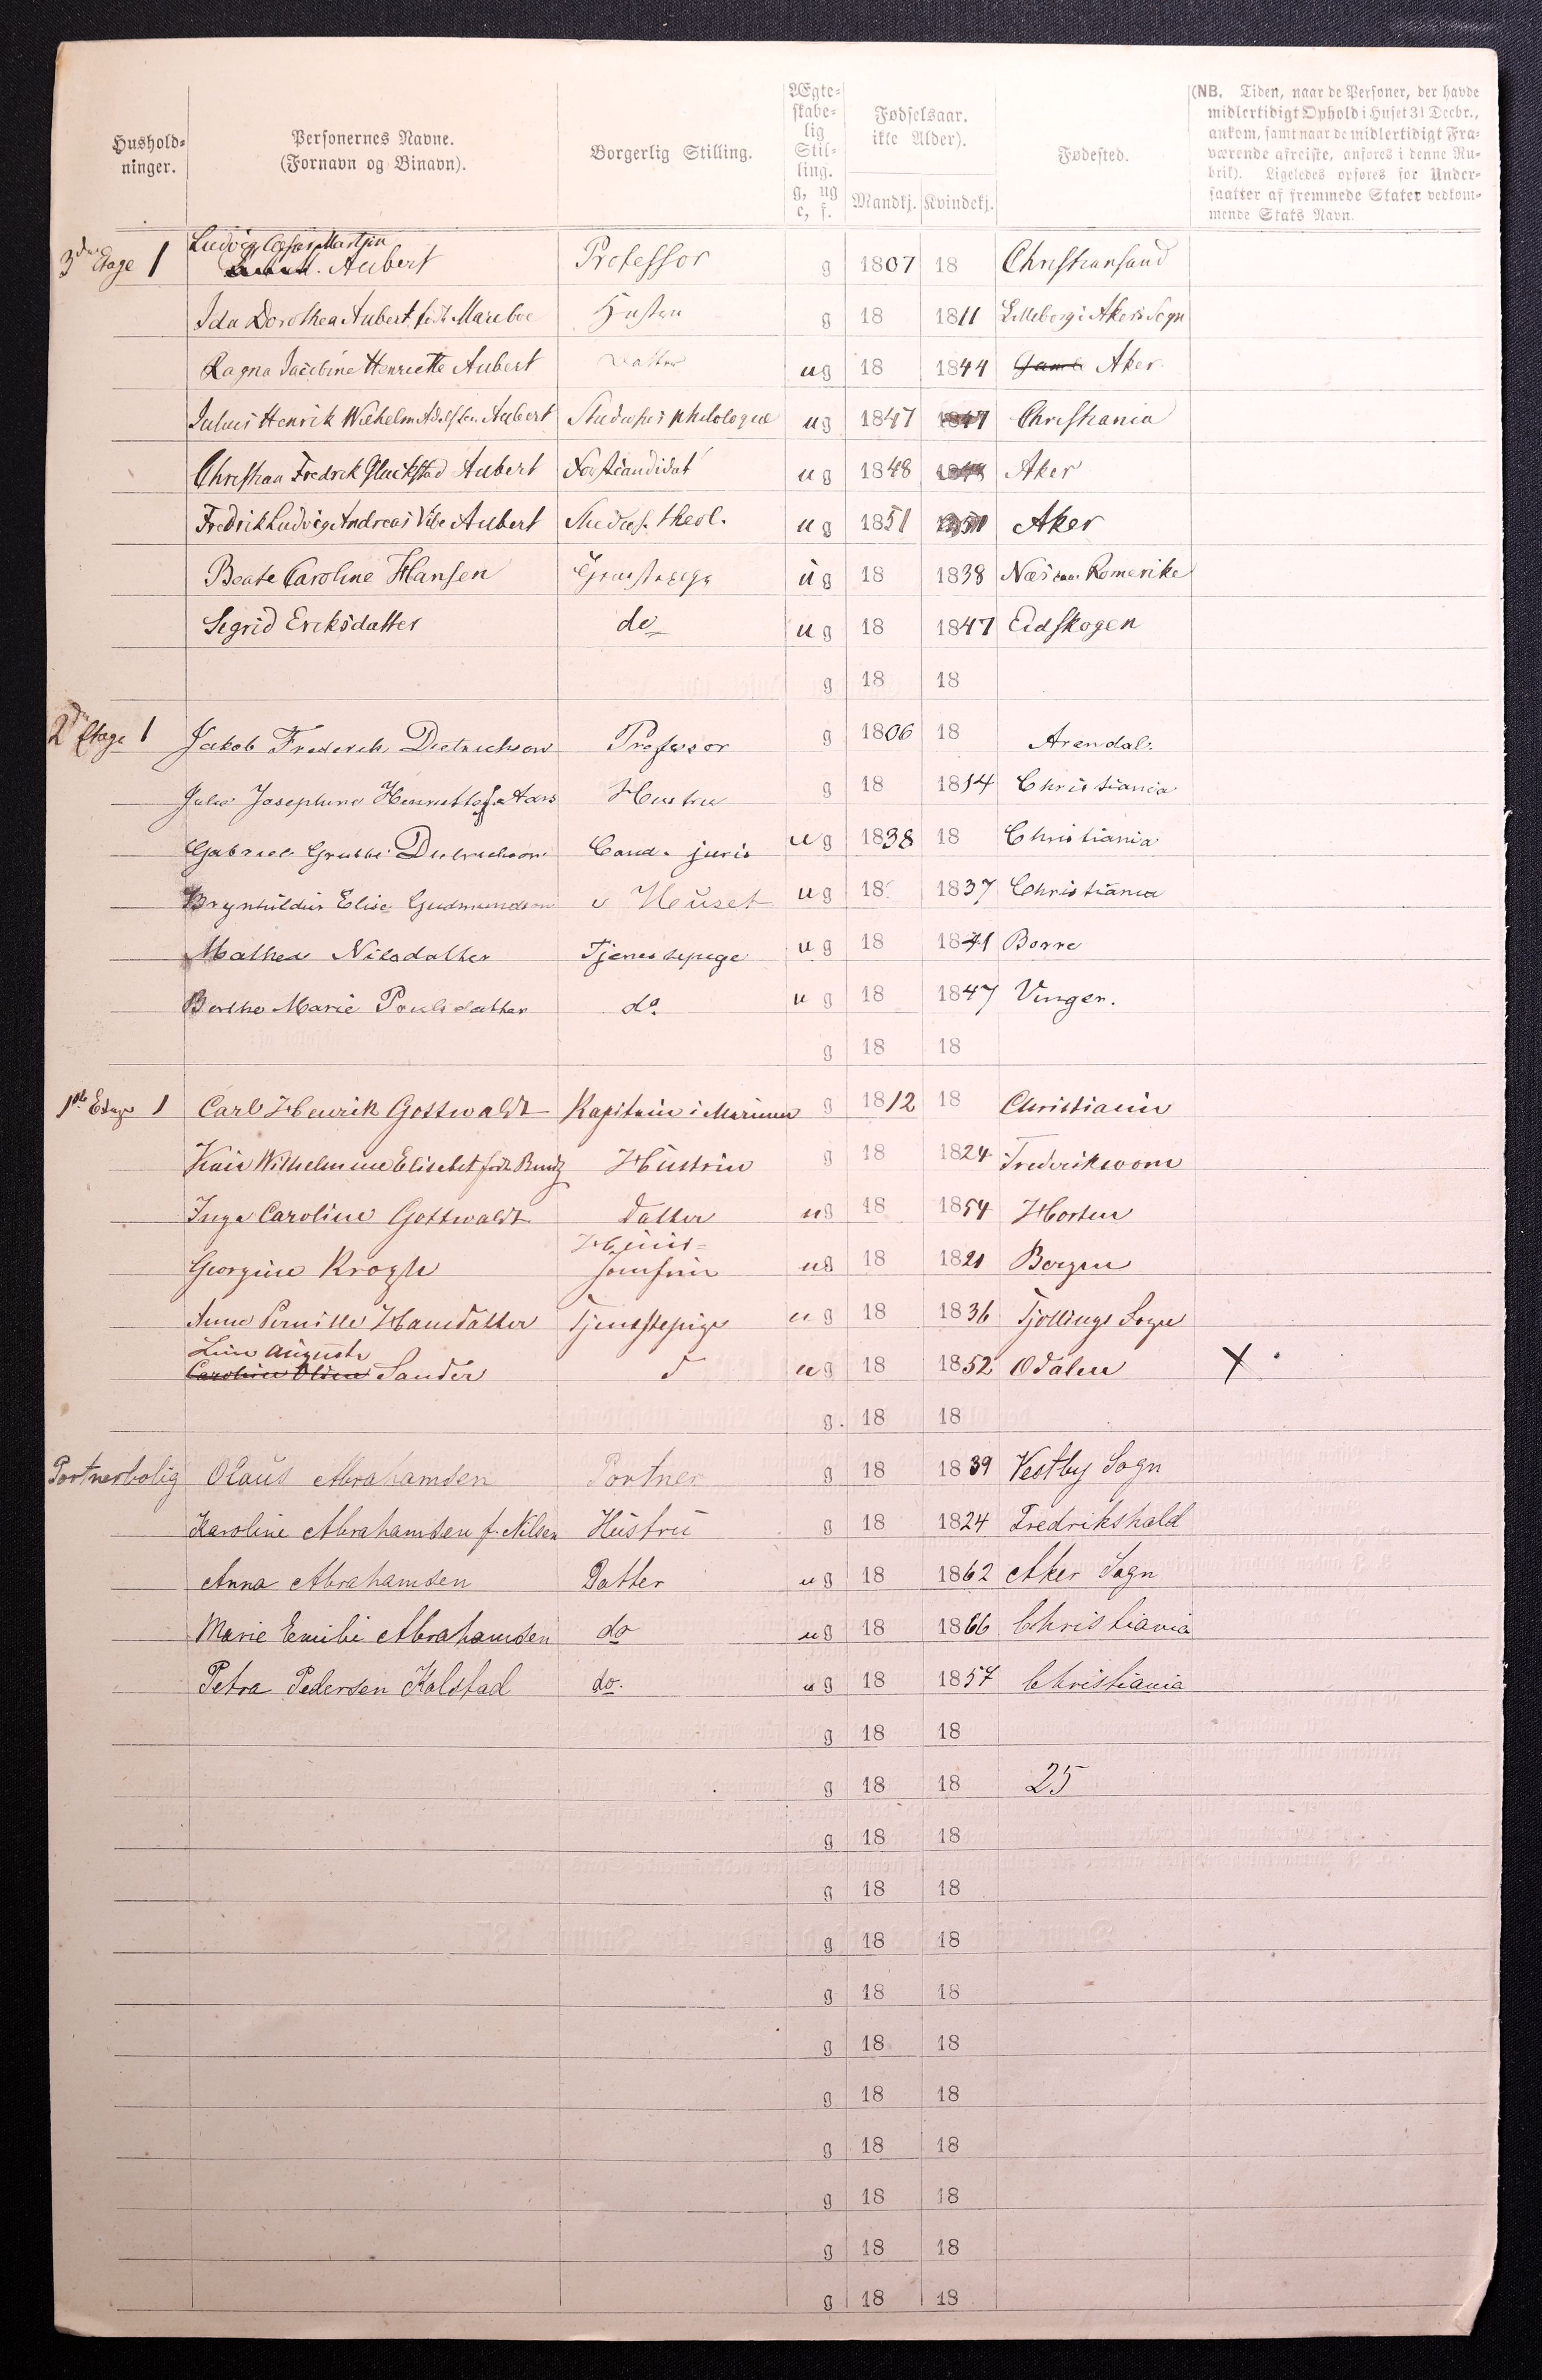 Hushold-
ninger.
Personernes Navne.
(Fornavn og Binavn).
Borgerlig Stilling.
Ægte-
skabe-
lig
Stil-
ling.
g, ug
e, f.
Fødselsaar.
ikke Alder).
Mandkj. Kvindekj.
Fødested.
(NB. Tiden, naar de Personer, der havde
midlertidigt Ophold i Huset 31 Decbr.,
ankom, samt naar de midlertidigt Fra-
værende afreiste, anføres i denne Ru-
brik). Ligeledes opføres for Under-
saatter af fremmede Stater vedkom-
mende Stats Navn.
Ludvig Cæsar Martin
3die Etage 1 Aubert Professor g 1807 18 Christiansand
Ida Dorothea Aubert, født Mariboe Hustru g 18 1811 Lilleborg i Akers Sogn
Ragna Jacobine Henriette Aubert Datter ug 18 1844 Aker
Julius Henrik Wilhelm Aubert Studiosus philologiæ ug 1847 1847 Christiania
Christian Fredrik Gluckstad Aubert Forstcandidat ug 1848 1848 Aker
Fredrik Ludvig Andreas Vibe Aubert Studios. theol. ug 1851 1851 Aker
Beate Caroline Hansen Tjenestepige ug 18 1838 Næs paa Romerike
Sigrid Eriksdatter do ug 18 1847 Eidskogen
g 18 18
2den Etage 1 Jakob Frederik Dietrichson Professor g 1806 18 Arendal.
Julie Josephine Henriette f. Aars Hustru g 18 1814 Christiania
Gabriel Grubbe Dietrichson Cand. juris ug 1838 18 Christiania
Brynhildur Elise Gudmundson i Huset ug 18 1837 Christiania
Mathea Nilsdatter Tjenestepige ug 18 1841 Borre
Berthe Marie Poulsdatter do. ug 18 1847 Vinger.
g 18 18
1ste Etage 1 Carl Henrik Gottwaldt Kapitain i Marinen g 1812 18 Christiania
Wilhelmine Elisabet født Hustru g 18 1824 Frederiksværn
Inga Caroline Gottwaldt Datter ug 18 1854 Horten
Huus-
Georgine Krogh Jomfru ug 18 1821 Bergen
Anne Pernille Hansdatter Tjenestepige ug 18 1836 Tjøllings Sogn
Line Auguste
Caroline Olsen Sander d ug 18 1852 Odalen X
g. 18 18
Portnerbolig Olaus Abrahamsen Portner g 18 1839 Vestby Sogn
Karoline Abrahamsen f. Nilsen Hustru g 18 1824 Fredrikshald
Anna Abrahamsen Datter ug 18 1862 Aker Sogn
Marie Emilie Abrahamsen do ug 18 1866 Christiania
Petra Pedersen Kolstad do. ug 18 1857 Christiania
g 18 18
g 18 18 25
g 18 18
g 18 18
g 18 18
g 18 18
g 18 18
g 18 18
g 18 18
g 18 18
g 18 18
g 18 18